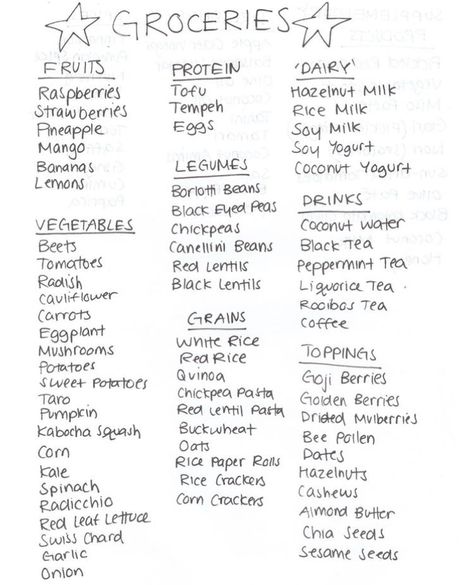 GROCERIES
FRUITS
Raspberries
Strawberries
Pineapple
Mango
Bananas
Lemons
VEGETABLES
Beets
Tomatoes
Radish
Cauliflower
Carrots
Eggplant
Mushrooms
Potatoes
Sweet Potatoes
Taro
Pumpkin
Kabocha Squash
Corn
Kale
Spinach
Radicchio
Red Leaf Lettuce
Swiss Chard
Garlic
Onion
PROTEIN
Tofu
Tempeh
Eggs
LEGUMES
Borlotti Beans
Black Eyed Peas
Chickpeas
Canellini Beans
Red Lentils
Black Lentils
GRAINS
White Rice
Red Rice
Quinoa
Chickpea Pasta
Red Lentil Pasta
Buckwheat
Oats
Rice Paper Rolls
Rice Crackers
Corn Crackers
'DAIRY'
Hazelnut Milk
Rice Milk
Soy Milk
Soy Yogurt
Coconut Yogurt
DRINKS
Coconut Water
Black Tea
Peppermint Tea
Liquorice Tea
Rooibos Tea
Coffee
TOPPINGS
Goji Berries
Golden Berries
Dried Mulberries
Bee Pollen
Dates
Hazelnuts
Cashews
Almond Butter
Chia Seeds
Sesame Seeds